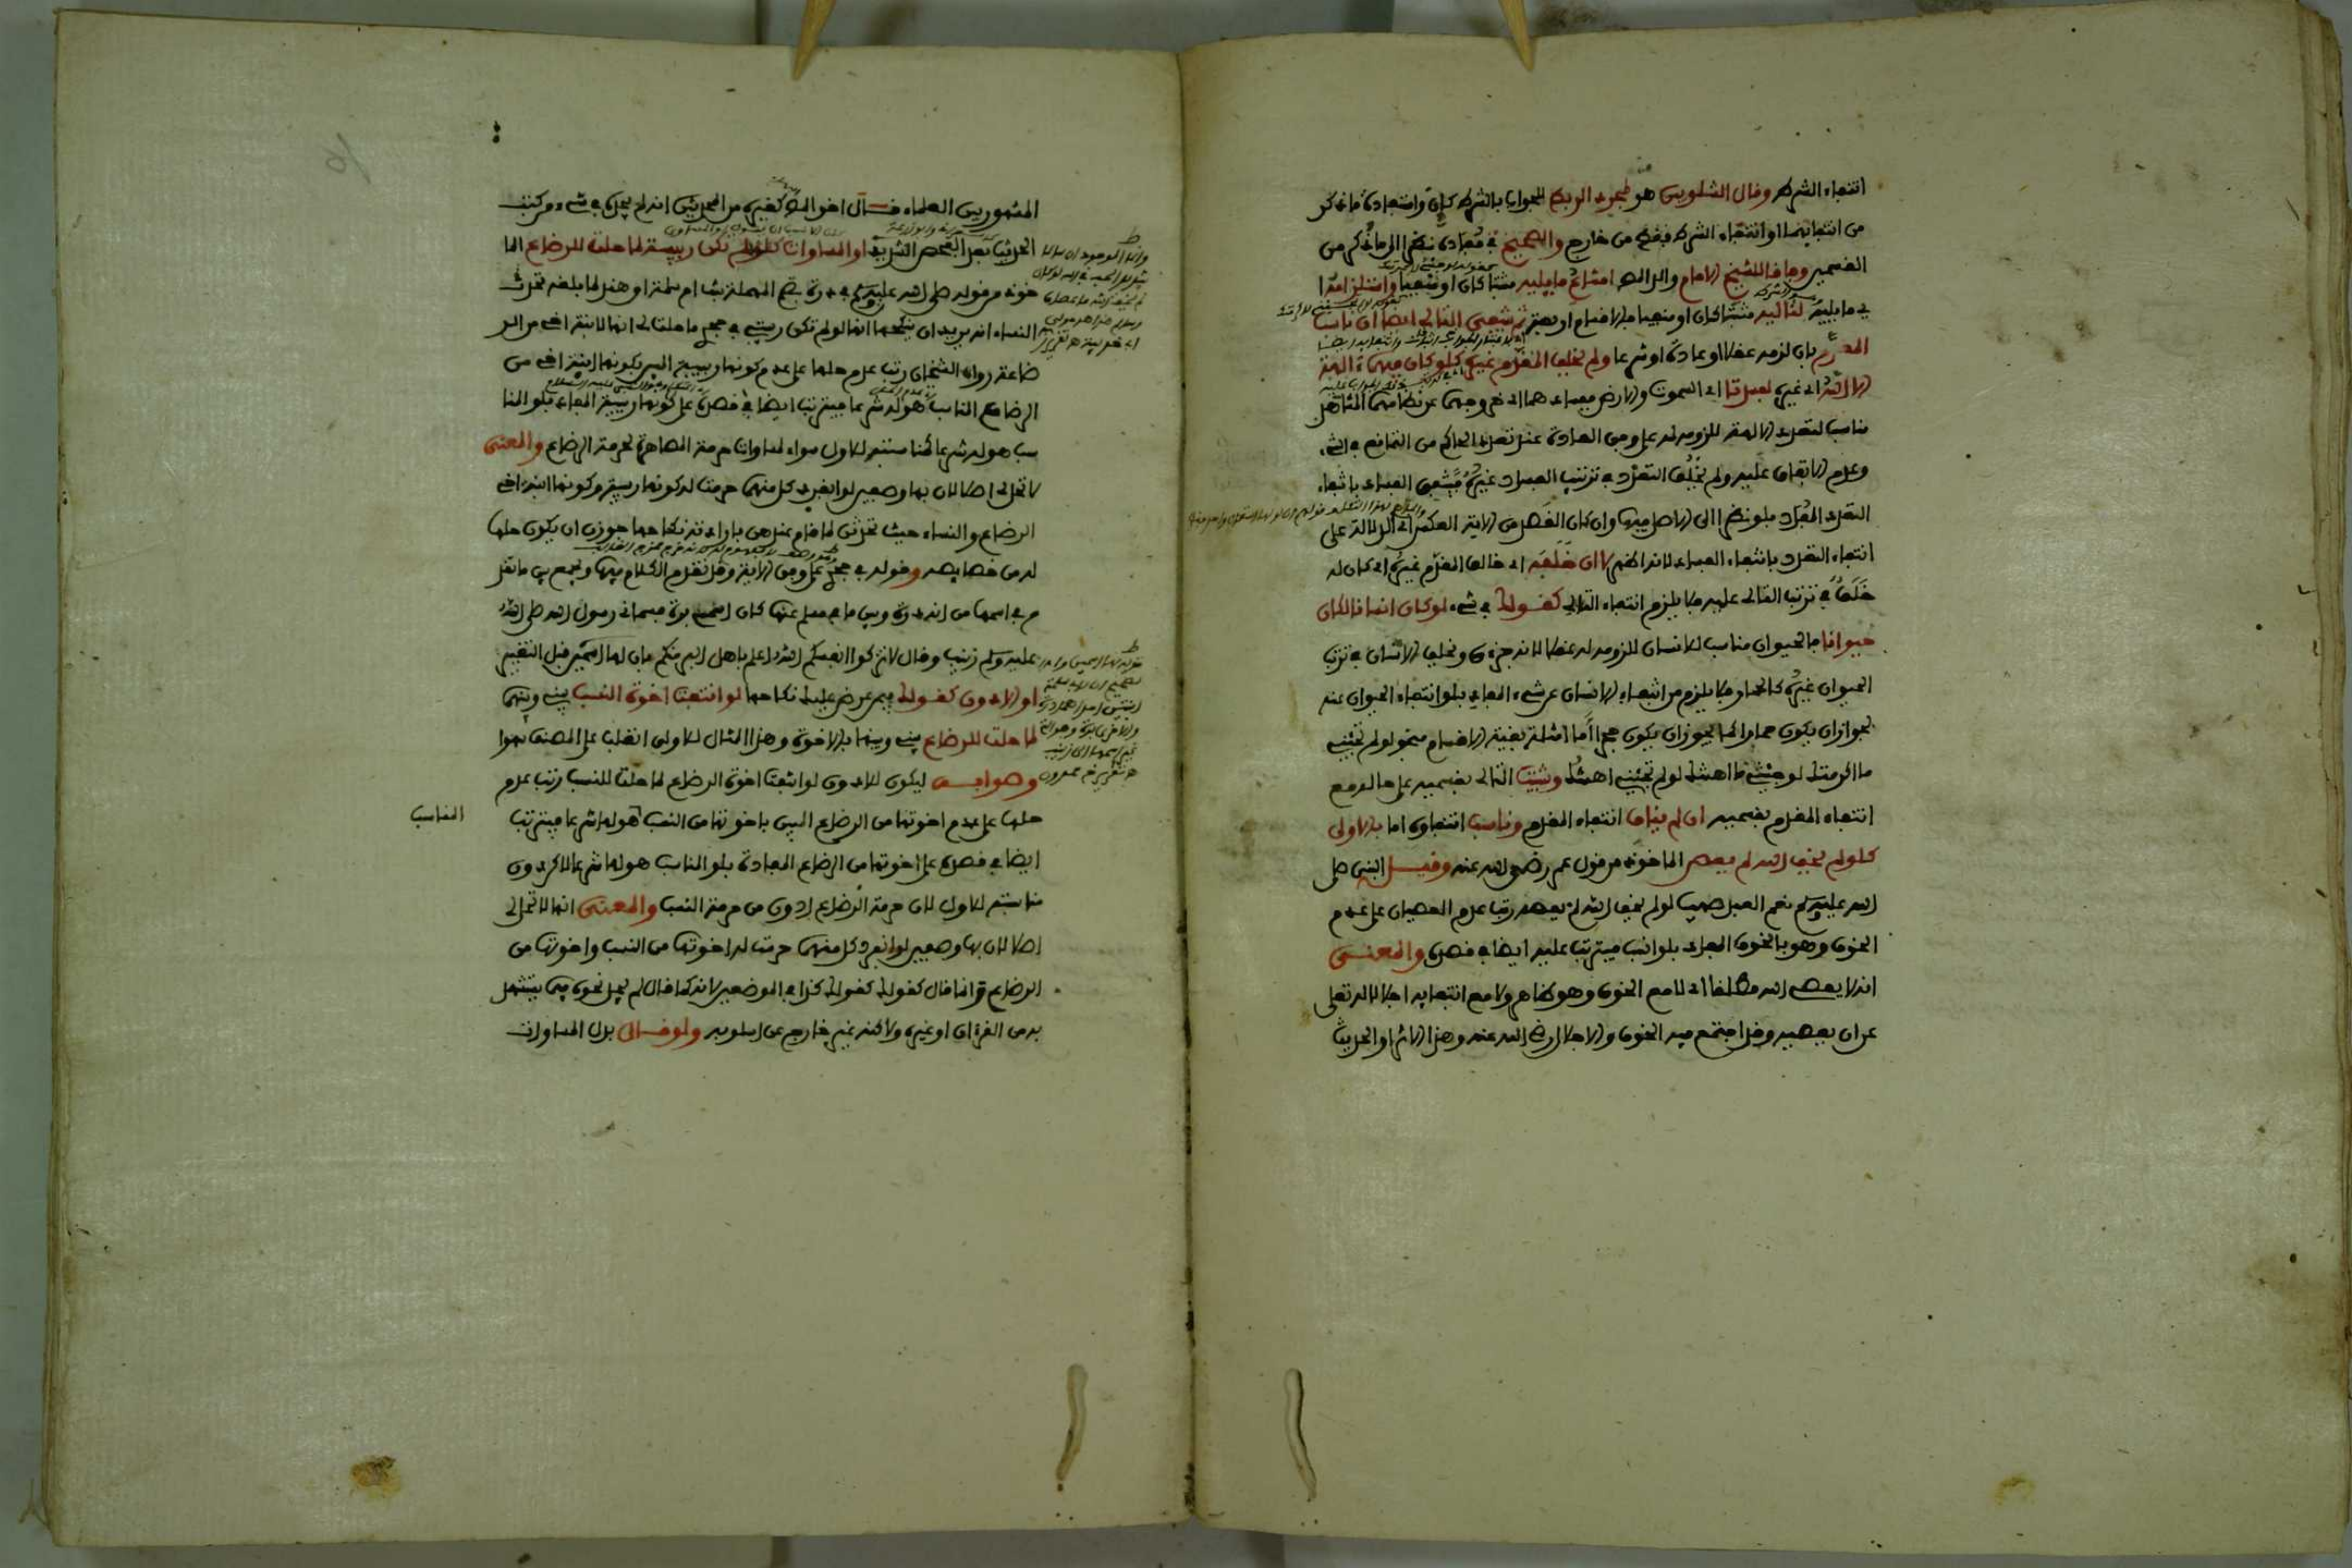 انتفاء الشرط وقال الشلوبين هو لمجرد الربط للجواب بالشرط كإن واستفادة ما ذكر
من انتفائهما او انتفاء الشرط فقط من خارج والصحيح في مفاده نظرا الى ما ذكر من
القسمين وفاقا للشيخ الامام والد المص امتناع ما يليه مثبتا كان او منفيا واستلزامه
اي ما يليه لتاليه مثبتا كان او منفيا فالاقسام اربعة ثم ينتفي التالي ايضا ان ناسب
المقدم بان لزمه عقلا او عادة او شرعا ولم يخلف المقدم غيره كلو كان فيهما ءالهة
الا الله اي غيره لفسدتا اي السموت والارض ففساد هما اي خروجهما عن نظامهما المشاهد
مناسب لتعدد الالهة للزومه له على وفق العادة عند تعدد الحاكم من التمانع في الشيء
وعدم الاتفاق عليه ولم يخلف التعدد في ترتب الفساد غيره فينتفي الفساد بانتفاء
التعدد المفاد بلو نظرا الى الاصل فيها وان كان القصد من الاية العكس اي الدلالة على
انتفاء التعدد بانتفاء الفساد لانه اظهر لا ان خلفه اي خالف المقدم غيره اي كان له
خلف في ترتب التالي عليه فلا يلزم انتفاء التالي كقولك في شيء لو كان انسانا لكان
حيوانا فالحيوان مناسب للانسان للزومه له عقلا لانه جزءه ويخلف الانسان في ترتب
الحيوان غيره كالحمار فلا يلزم من انتفاء الانسان عن شيء المفاد بلو انتفاء الحيوان عنه
لجواز ان يكون حمارا كما يجوز ان يكون حجرا اما امثلة بقية الاقسام فنحو لو لم تجئني
ما اكرمتك لو جئتني ما اهنتك لو لم تجئني اهنتك ويثبت التالي بقسميه على حاله مع
انتفاء المقدم بقسميه ان لم يناف انتفاء المقدم وناسب انتفاءه اما بالاولى
كلو لم يخف الله لم يعص الماخوذ من قول عمر رضي الله عنه وقيل النبي صلى
الله عليه وسلم نعم العبد صهيب لو لم يخف الله لم يعصه رتب عدم العصيان على عدم
الخوف وهو بالخوف المفاد بلو انسب فيترتب عليه ايضا في قصده والمعنى
انه لا يعصي الله مطلقا اي لا مع الخوف وهو ظاهر ولا مع انتفايه اجلالا له تعلى
عن ان يعصيه وقد اجتمع فيه الخوف والاجلال رضي الله عنه وهذا الاثر او الحديث
المشهور بين العلماء قال اخو المص كغيره من المحدثين انه لم يجده في شيء من كتب
الحديث بعد الفحص الشديد او المساوات كلو لم تكن ربيبة لما حلت للرضاع الما
خوذ من قوله صلى الله عليه وسلم في درة بضم المهملة بنت ام سلمة اي هند لما بلغه تحدث
النساء انه يريد ان ينكحها انها لو لم تكن ربيبتي في حجري ما حلت لي انها لابنة اخي من الر
ضاعة رواه الشيخان رتب عدم حلها على عدم كونها ربيبة المبين بكونها ابنة اخي من
الرضاع المناسب هو له شرعا فيترتب ايضا في قصده على كونها ربيبة المفاد بلو المنا
سب هو له شرعا كمناسبته للاول سواء لمساوات حرمة المصاهرة لحرمة الرضاع والمعنى
لا تحل لي اصلا لان بها وصفين لو انفرد كل منهما حرمت له كونها ربيبة وكونها ابنة اخي
الرضاع والنساء حيث تحدثن لما قام عندهن بارادته نكاحها جوزن ان يكون حلها
له من خصايصه وقوله في حجري على وفق الاية وقد تقدم الكلام فيها ويجمع بين ما تقد
م في اسمها من انه درة وبين ما في مسلم عنها كان اسمي برة فسماني رسول الله صلى الله
عليه وسلم زينب وقال لا تزكوا انفسكم الله اعلم باهل البر منكم بان لها اسمين قبل التغيير
او الادون كقولك فيمن عرض عليك نكاحها لو انتفت اخوة النسب بيني وبينها
لما حلت للرضاع بيني وبينها بالاخوة وهذا المثال للاولى انقلب على المصنف سهوا
وصوابه ليكون للادون لو انتفت اخوة الرضاع لما حلت للنسب رتب عدم
حلها على عدم اخوتها من الرضاع المبين باخوتها من النسب المناسب هو لها شرعا فيترتب
ايضا في قصده على اخوتها من الرضاع المفادة بلو المناسب هو لها شرعا لاكن دون
مناسبته للاول لان حرمة الرضاع ادون من حرمة النسب والمعنى انها لا تحل لي
اصلا لان بها وصفين لو انفرد كل منهما حرمت له اخوتها من النسب واخوتها من
الرضاع وانما قال كقولك كقولك كذا في الموضعين لانه كما قال لم يجد نحوه فيما يستشهد
به من القرءان او غيره ولاكنه غير خارج عن اسلوبه ولو قال بدل المساوات